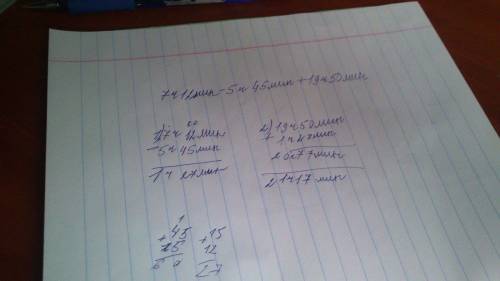 7ч12мин-5ч45мин+19ч50мин
60
1) 7ч 12мин
- 5ч 45мин
1ч 27мин
2) 19ч50мин
+ 1ч 27мин
20ч77мин
21ч17мин
1
+45
15
60
+15
12
27